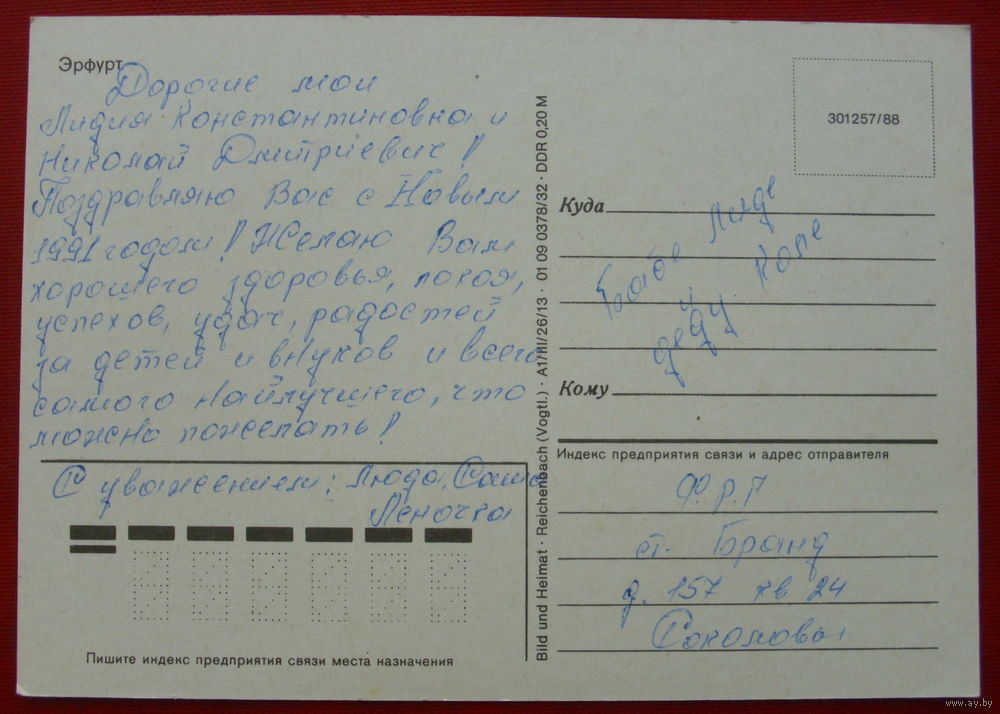 Эрфурт
Дорогие мои
Лидия Константиновна и
Николай Дмитриевич!
Поздравляю Вас с Новым
1991 годом! Желаю Вам
хорошего здоровья, покоя,
успехов, удач, радостей
за детей и внуков и всего
самого найлучшего, что
можно пожелать!
С уважением: Люда, Саша
Леночка
Пишите индекс предприятия связи места назначения
Bild und Heimat · Reichenbach (Vogtl.) · A1/III/26/13 · 01 09 0378/32 · DDR 0,20 M
301257/88
Куда
Бабе Лиде
и
деду Коле
Кому
Индекс предприятия связи и адрес отправителя
Ф.Р.Г
ст. Бранд
д. 157 кв 24
Соколовы
www.ay.by